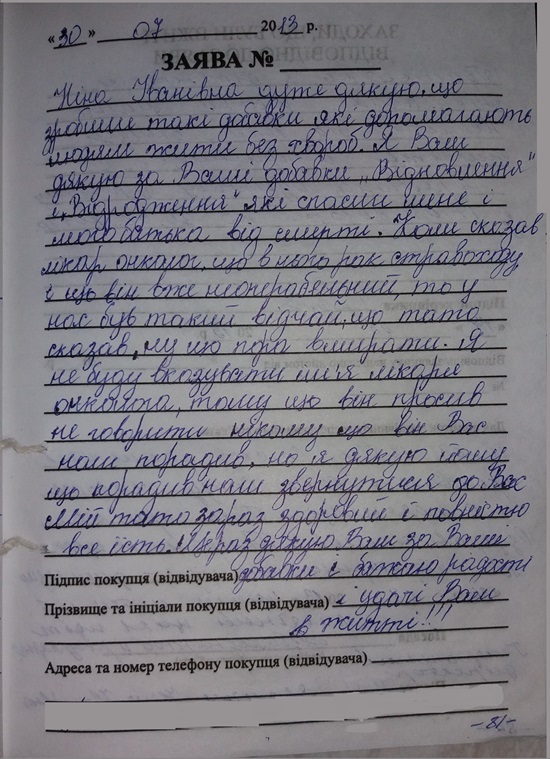 „30" 07 2013 р.
ЗАЯВА №
Ніна Іванівна дуже дякую, що
зробили такі добавки які допомагають
людям жити без хвороб. Я Вам
дякую за Ваші добавки „Відновлення"
і „Відродження" які спасли мене і
мого батька від смерті. Коли сказав
лікар онколог, що в нього рак стравоходу
і що він вже неоперабельний, то у
нас був такий відчай, що тато
сказав, ну що пора вмирати. Я
не буду вказувати ім'я лікаря
онколога, тому що він просив
не говорити нікому що він Вас
нам порадив, но я дякую йому
що порадив нам звернутися до Вас
Мій тато зараз здоровий і повністю
все їсть. І ще раз дякую Вам за Ваші
Підпис покупця (відвідувача) добавки і бажаю радості
Прізвище та ініціали покупця (відвідувача) і удачі Вам
в житті!!!
Адреса та номер телефону покупця (відвідувача)
-81-